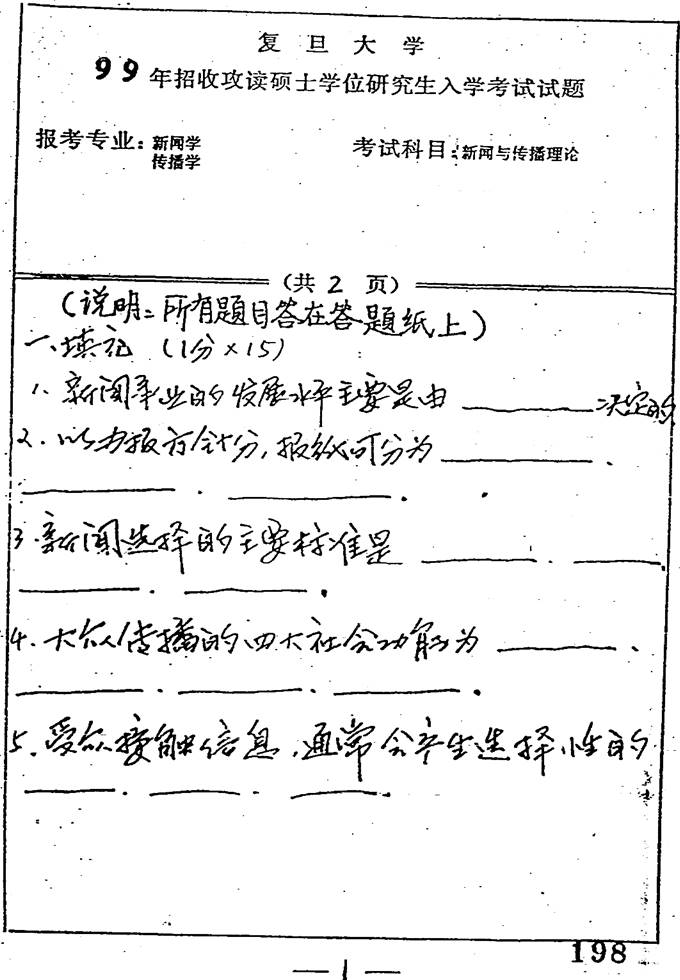 复旦大学
99年招收攻读硕士学位研究生入学考试试题
报考专业：新闻学
传播学
考试科目：新闻与传播理论
（共2页）
（说明：所有题目答在答题纸上）
一、填充（1分×15）
1、新闻事业的发展水平主要是由______决定的
2、以办报方针分，报纸可分为______、
______、______。
3、新闻选择的主要标准是______、______、
______、______。
4、大众传播的四大社会功能为______、
______、______、______。
5、受众接触信息，通常会产生选择性的
______、______、______。
198
—1—